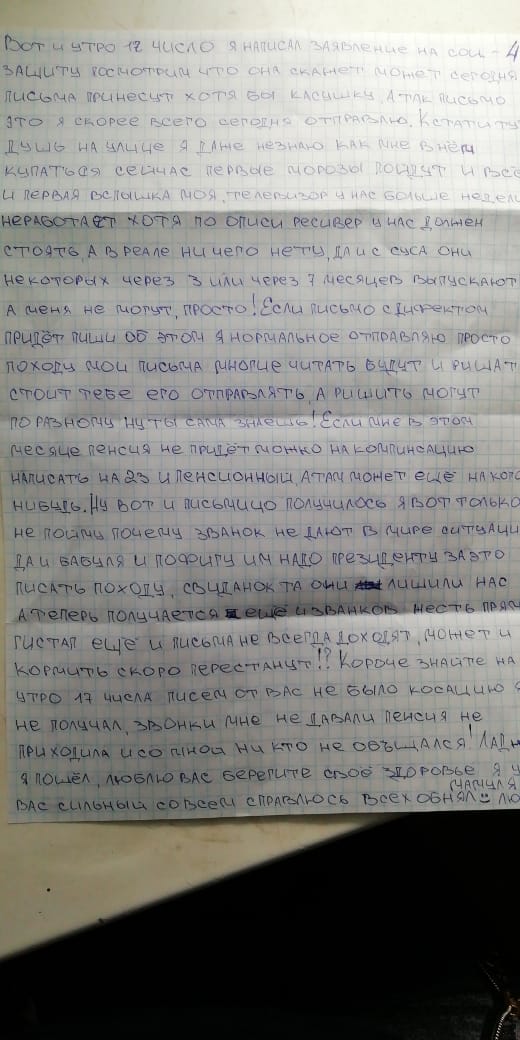 Вот и утро 17 число я написал заявление на соц - 4
защиту посмотрим что она скажет может сегодня
письма принесут хотя бы касушку, а так письмо
это я скорее всего сегодня отправлю. Кстати ту
душь на улице я даже незнаю как мне в нём
купаться сейчас первые морозы пойдут и всё
и первая вспышка моя, телевизор у нас больше недели
неработает хотя по описи ресивер у нас должен
стоять, а в реале ни чего нету, да и с суса они
некоторых через 3 или через 7 месяцев выпускают
а меня не могут, просто! Если письмо с дифектом
придёт пиши об этом я нормальное отправляю просто
походу мои письма многие читать будут и ришат
стоит тебе его отправлять, а ришить могут
по разному ну ты сама знаешь! Если мне в этом
месяце пенсия не придёт можно на компинсацию
написать на 23 и пенсионный, а там может ещё на кого
нибудь. Ну вот и письмицо получилось я вот только
не пойму почему званок не дают в мире ситуаци
да и бабуля и пофигу им надо президенту за это
писать походу, свиданок та они лишили нас
а теперь получается ещё и званков несть прям
гистап ещё и письма не всегда доходят, может и
кормить скоро перестанут!? Короче знайте на
утро 17 числа писем от вас не было косацию я
не получал, звонки мне не давали пенсия не
приходила и со мной ни кто не объщался! Ладн
я пошёл, люблю вас берегите своё здоровье я у
мамуля
вас сильный совсем справлюсь всех обнял лю